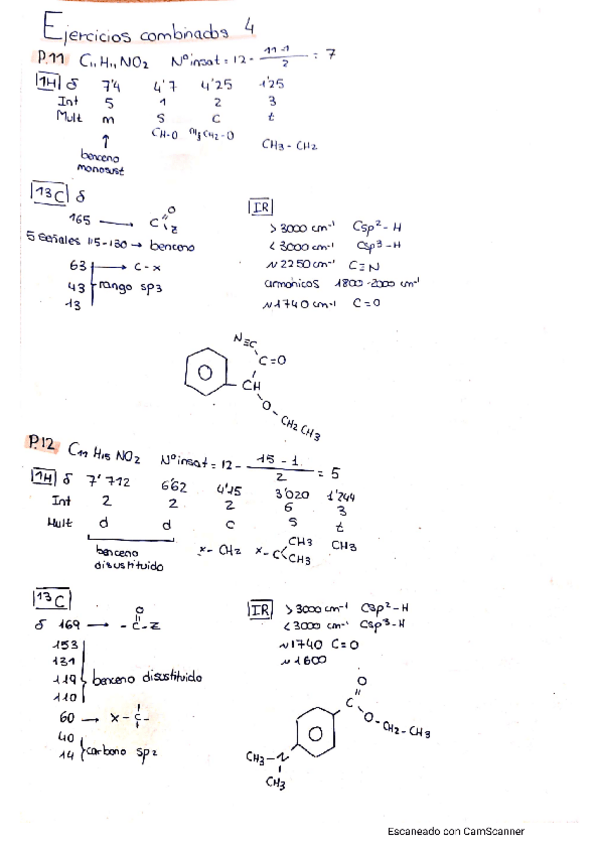 Ejercicios combinados 4
P.11 C₁₁ H₁₁ NO₂ Nº insat = 12 - 11-1/2 = 7
1H δ 7'4 4'7 4'25 1'25
Int 5 1 2 3
Mult m s c t
CH-O CH₂-O
CH3 - CH2
↑
benceno
monosust
13C δ
165 → C=O z
5 señales 115-130 → benceno
63 → C-x
43 rango sp3
13
IR
> 3000 cm⁻¹ Csp² - H
< 3000 cm⁻¹ Csp³ - H
~ 2250 cm⁻¹ C≡N
armonicos 1800-2000 cm⁻¹
~ 1740 cm⁻¹ C=O
N≡C
C=O
CH
O
CH2 CH3
P.12 C₁₁ H₁₅ NO₂ Nº insat = 12 - 15-1/2 = 5
1H δ 7'712 6'62 4'15 3'020 1'244
Int 2 2 2 6 3
Mult d d c s t
benceno
disustituido
x- CH2 x- C CH3 CH3 CH3
13C
δ 169 → -C=O-z
153
131
119 benceno disustituido
110
60 → x-C-
40
14 carbono sp2
IR > 3000 cm⁻¹ Csp²-H
< 3000 cm⁻¹ Csp³-H
~ 1740 C=O
~ 1600
O
C
O-CH2-CH3
CH3-N
CH3
Escaneado con CamScanner